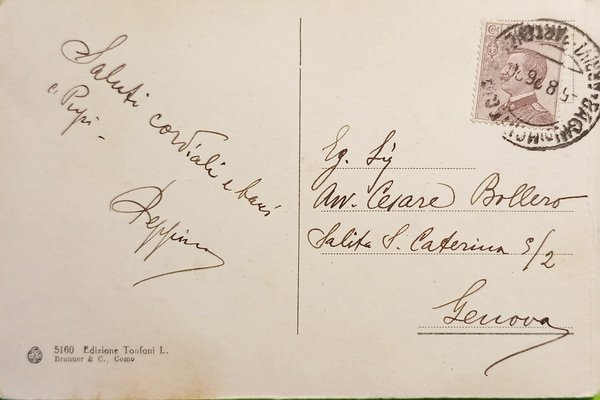 Saluti cordiali e baci
a Pupi -
Peppino
Eg. Sig
Avv. Cesare Bollero
Salita S. Caterina 5/2
Genova
5160 Edizione Tonfoni L.
Brunner & C., Como